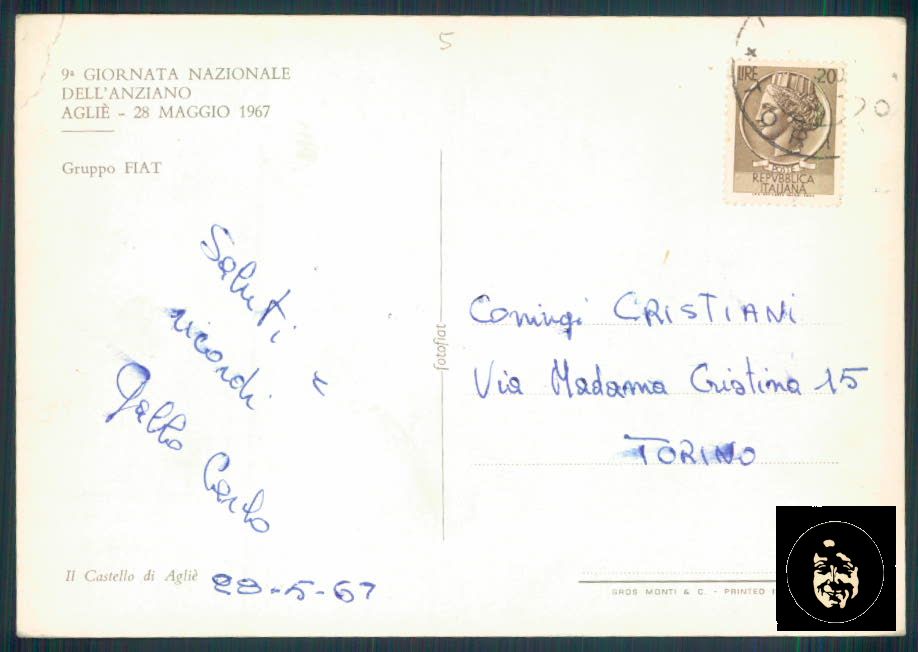 5
9ª GIORNATA NAZIONALE
DELL'ANZIANO
AGLIÈ - 28 MAGGIO 1967
Gruppo FIAT
Saluti e
ricordi
Gallo Carlo
Il Castello di Agliè
28-5-67
fotofiat
LIRE 20
POSTE
REPVBBLICA
ITALIANA
Coniugi CRISTIANI
Via Madama Cristina 15
TORINO
GROS MONTI & C. - PRINTED